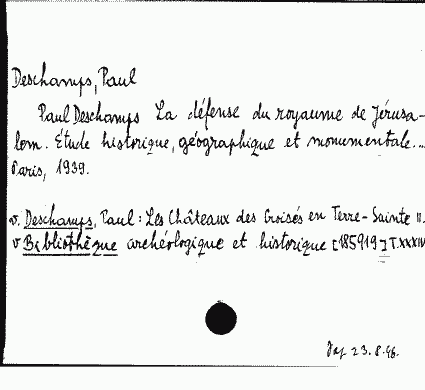 Deschamps, Paul
Paul Deschamps La défense du royaume de Jérusa-
lem. Étude historique, géographique et monumentale...
Paris, 1939.
v. Deschamps, Paul: Les Châteaux des Croisés en Terre-Sainte II.
v Bibliothèque archéologique et historique [185919] T.XXXIV
23.8.46.